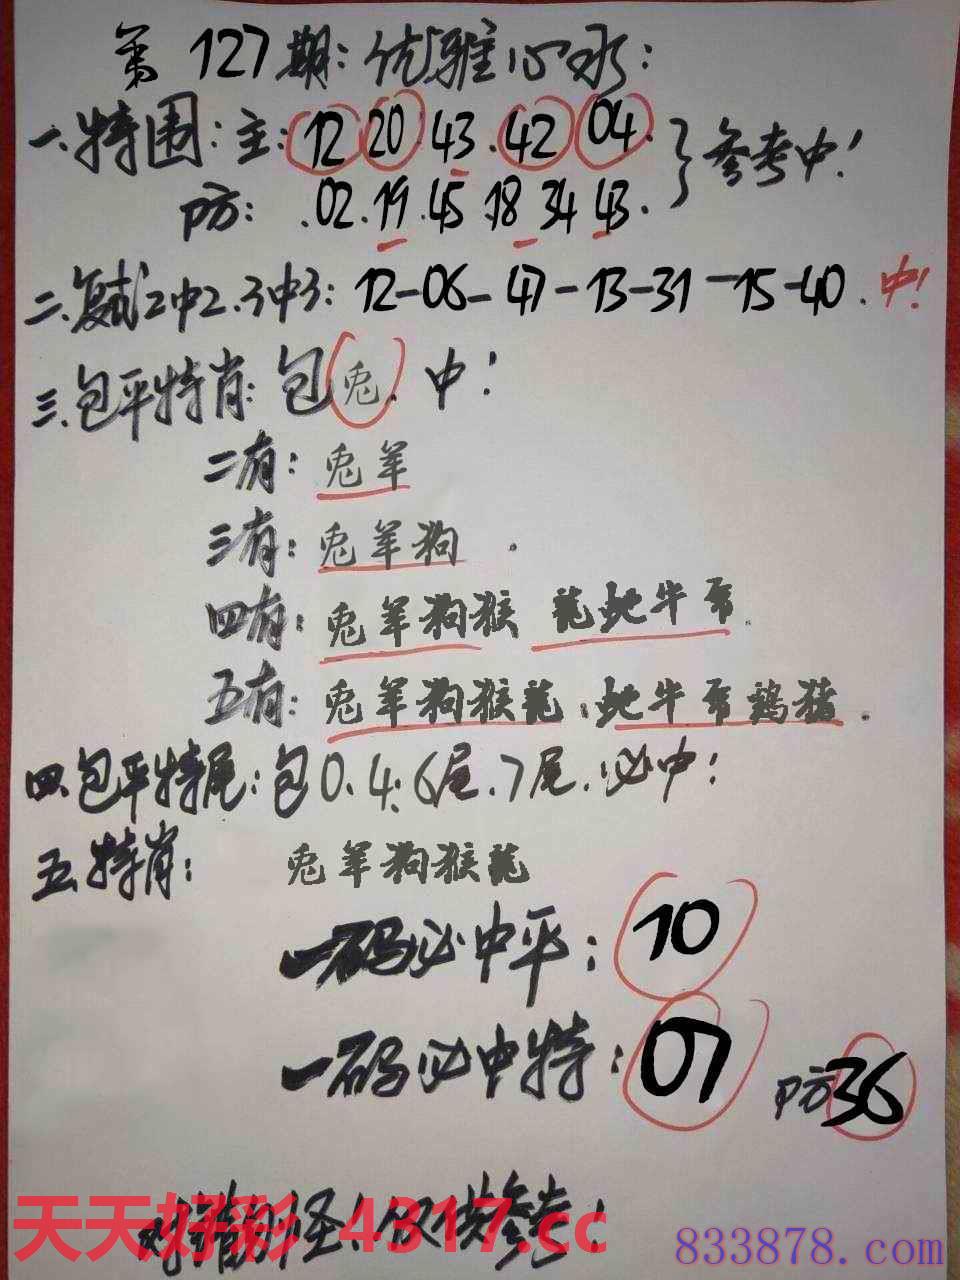 第127期:优雅心水:
一.特围:主:12 20.43.42 04.}参考中!
防:.02.19.45.18 34 43.
二.复试2中2.3中3:12-06-47-13-31-15-40.中!
三.包平特肖:包兔.中!
二有:兔羊
三有:兔羊狗.
四有:兔羊狗猴 龙蛇牛马.
五有:兔羊狗猴龙.蛇牛马鸡猪.
四.包平特尾:包0.4.6尾.7尾.必中!
五.特肖: 兔羊狗猴龙
一码必中平:10
一码必中特:07 防36
对错勿怪!仅供参考!
天天好彩 4317.cc
833878.com